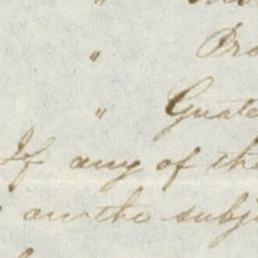 "
" Bro
" Guate
If any of the
on the subj